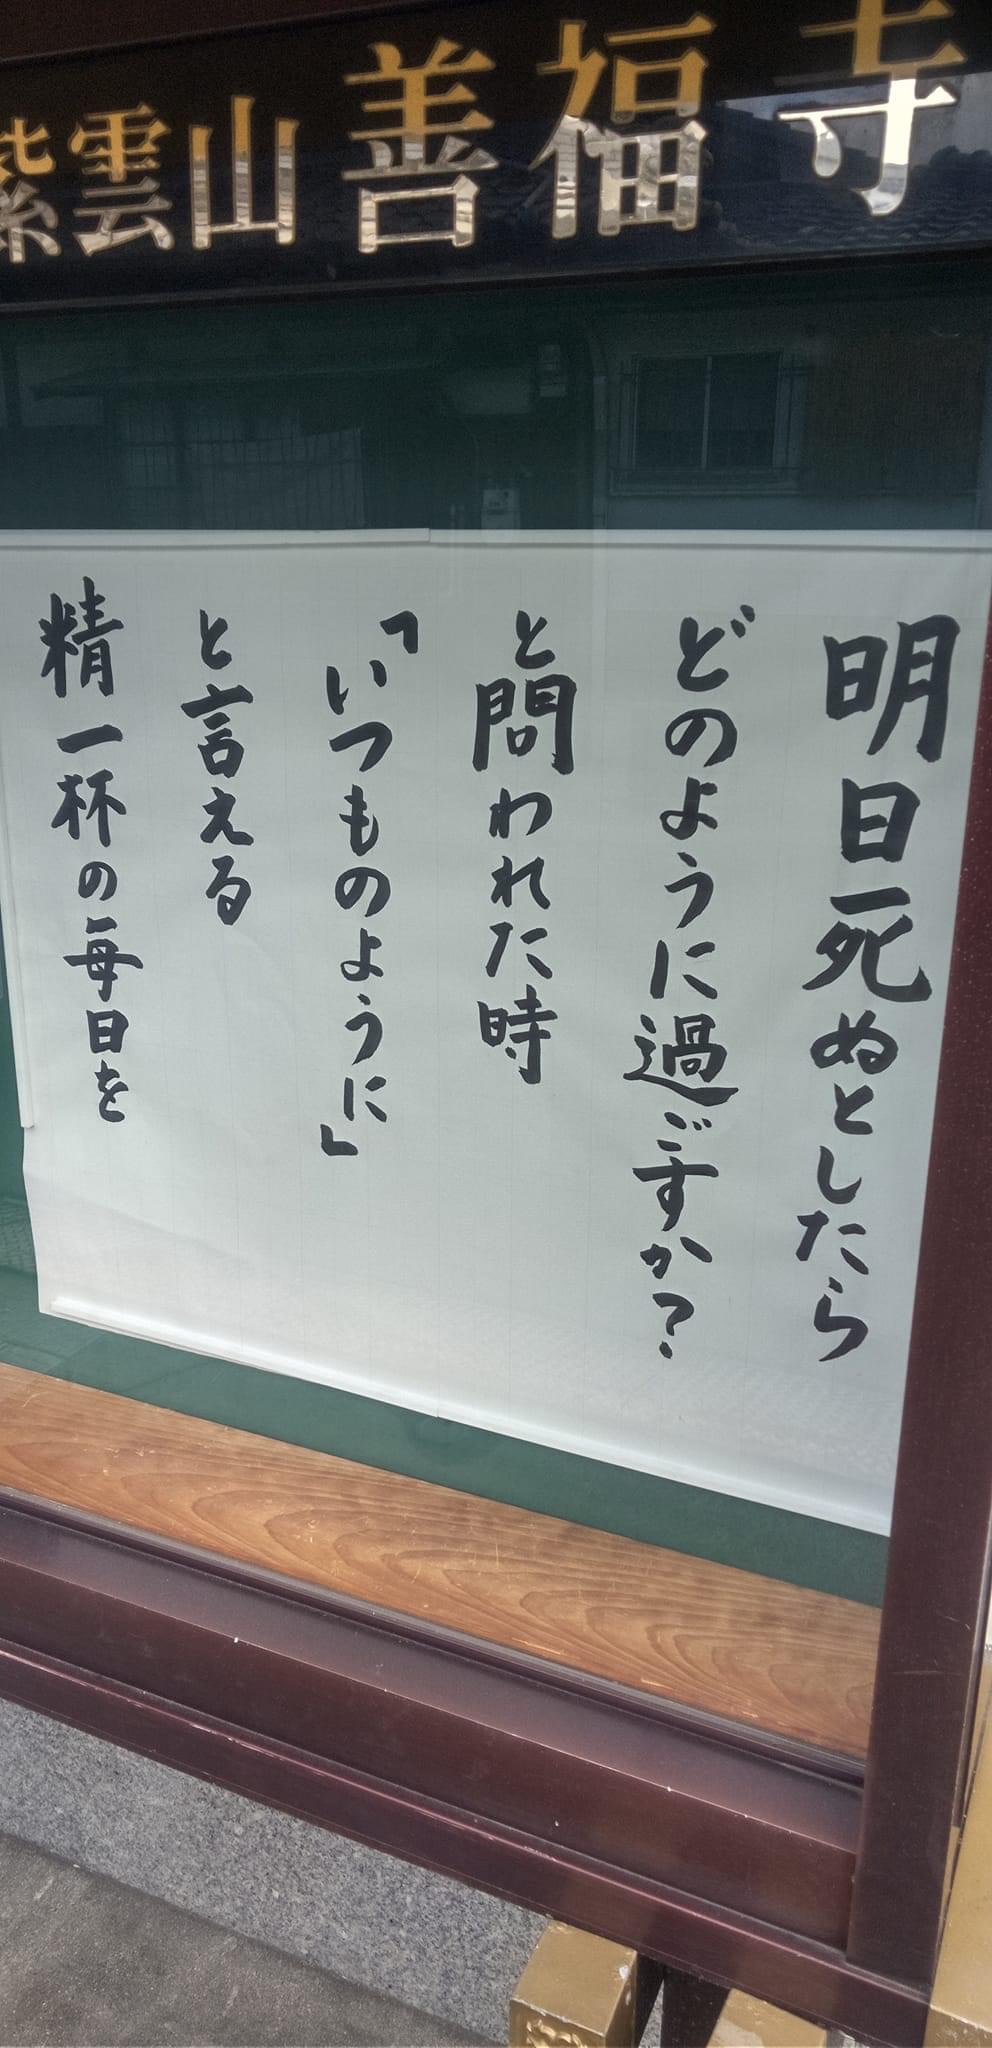 紫雲山善福寺
明日死ぬとしたら
どのように過ごすか?
と問われた時
「いつものように」
と言える
精一杯の毎日を